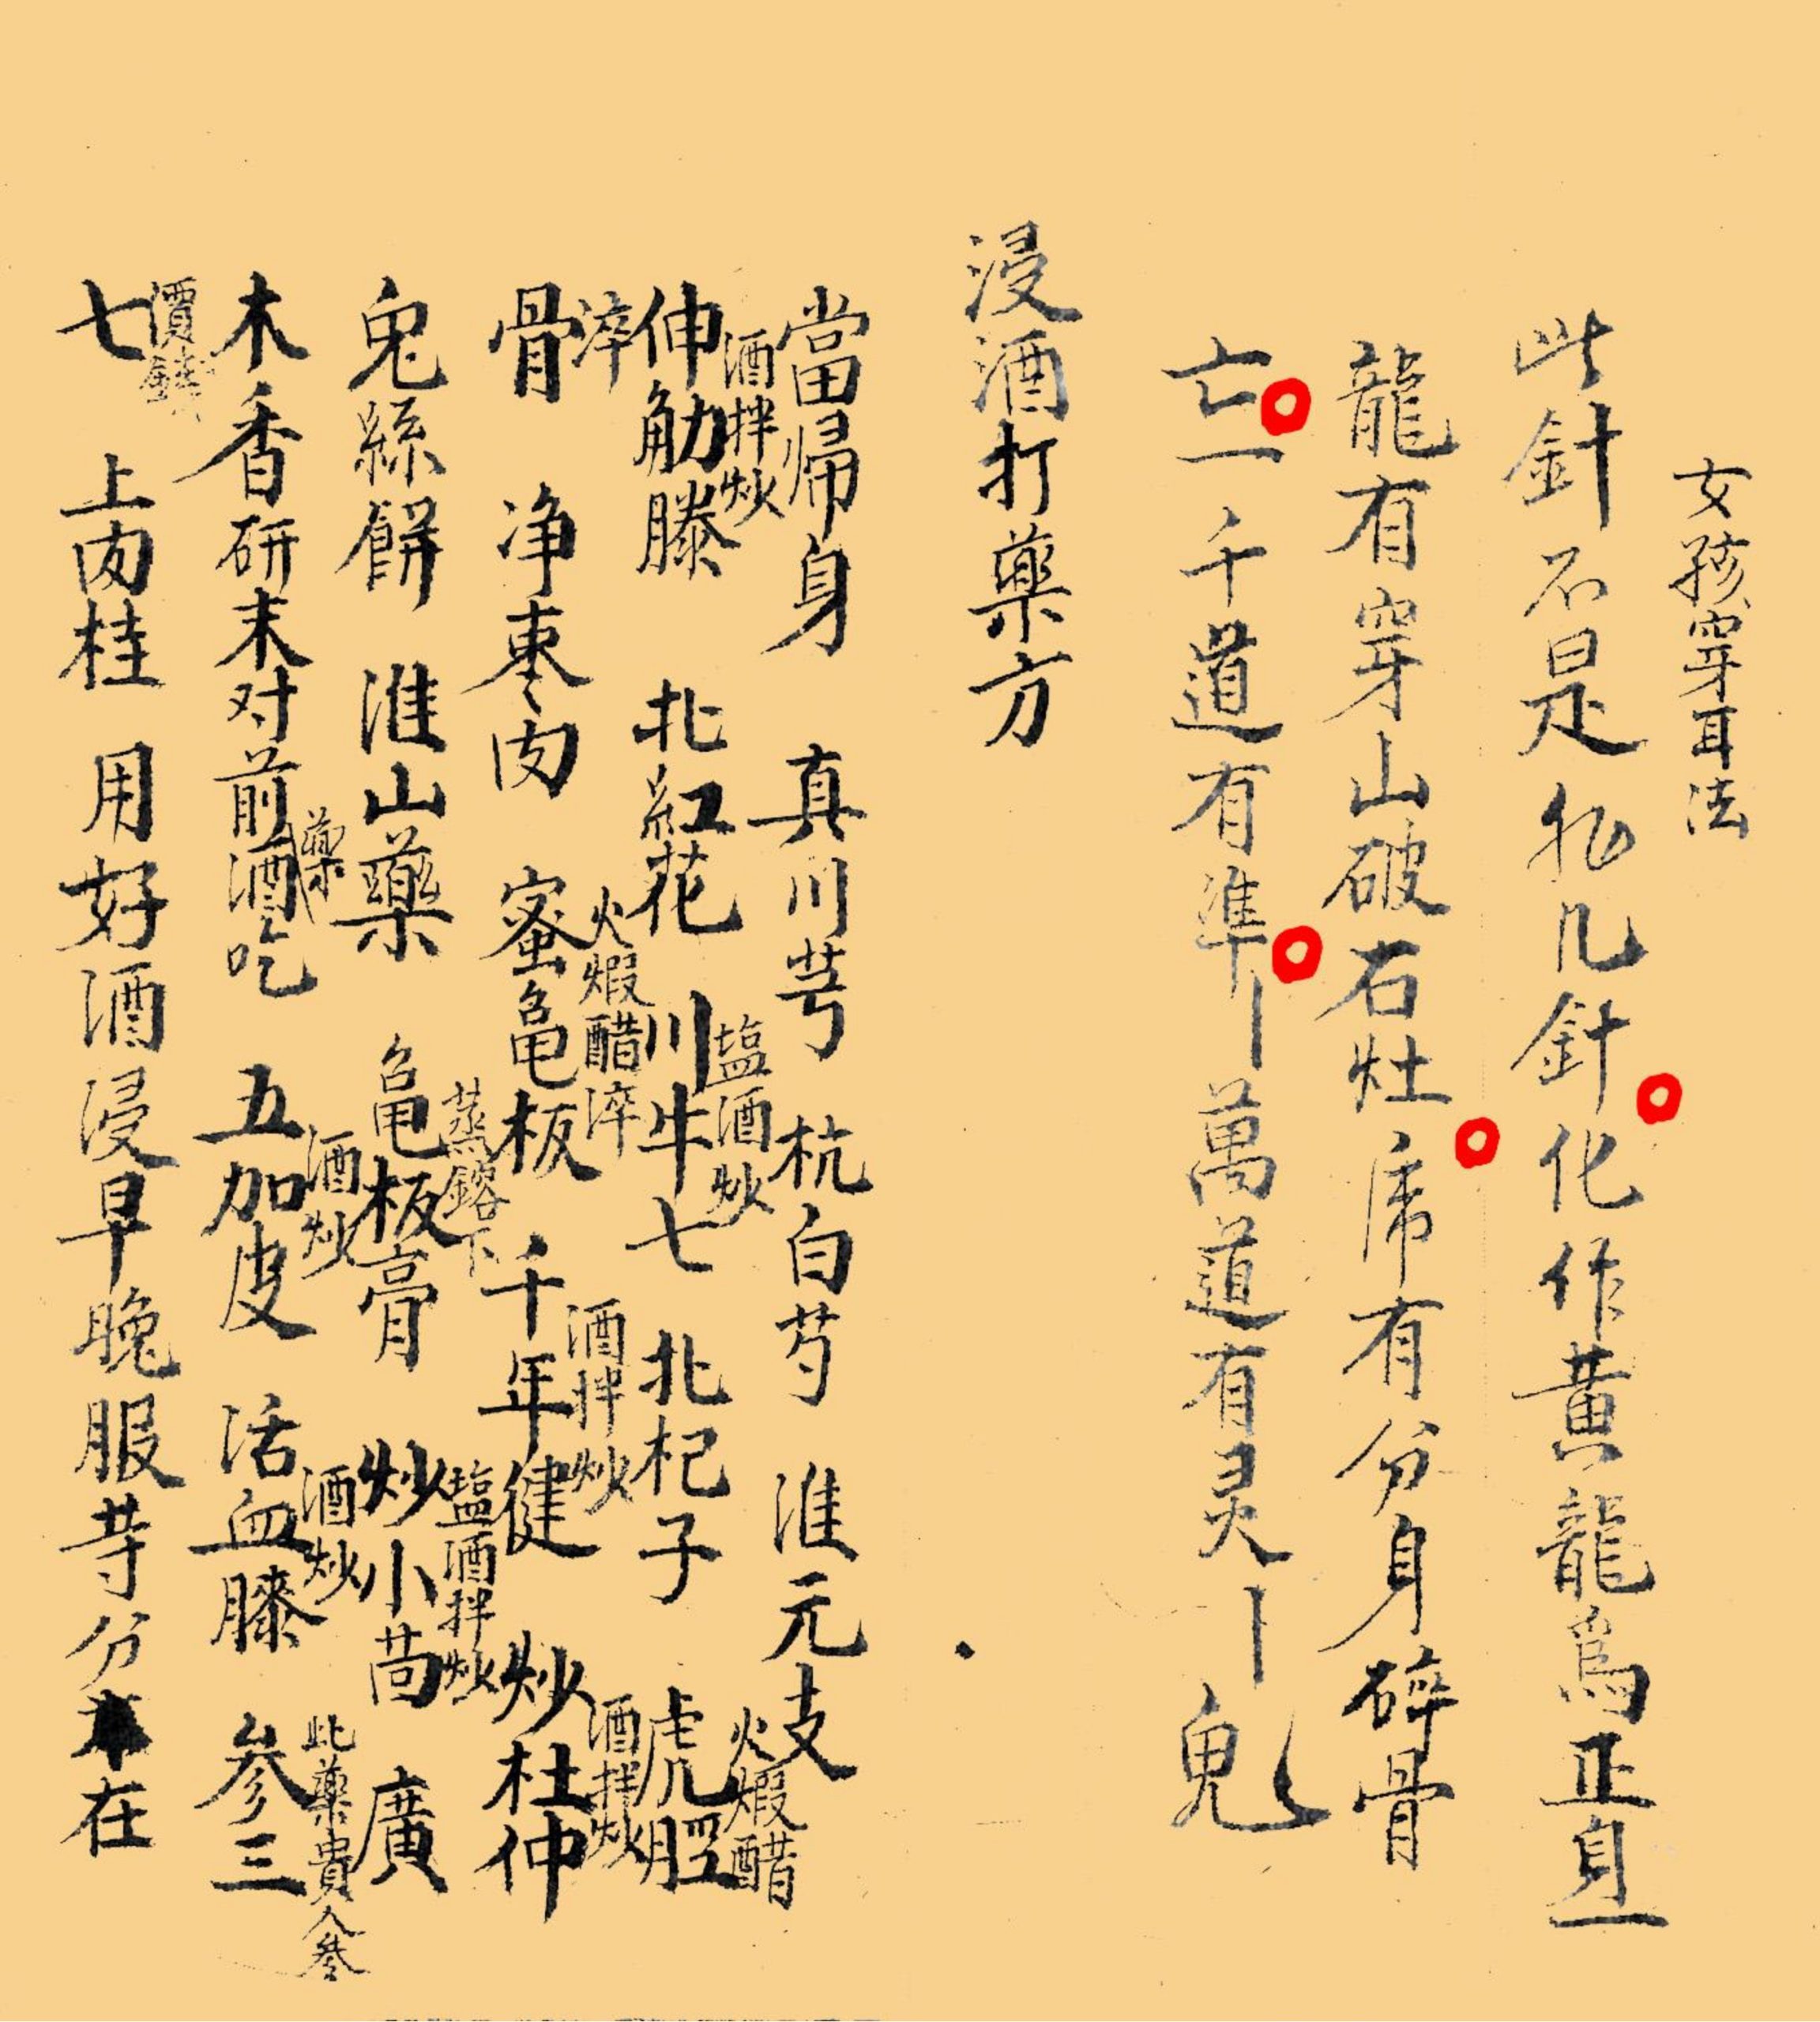 女孩穿耳法
此針不是非凡針化作黄龍為正身一
龍有穿山破石灶席有分身碎骨
亡一千道有準丨萬道有灵丨鬼
浸酒打藥方
當帰身 真川芎 杭白芍 淮元支
酒拌炒 塩酒炒 火煆醋
伸觔滕 北紅花 川牛七 北杞子 虎脛
淬 火煆醋淬 酒拌炒 酒拌炒
骨 净枣肉 蜜亀板 千年健 炒杜仲
蒸鎔下 塩酒拌炒
兔絲餅 淮山藥 亀板膏 炒小茴 廣
藥 酒炒 酒炒 此藥貴人参
木香研末对前酒吃 五加皮 活血膝 参三
價錢
七 上肉桂 用好酒浸早晚服䓁分在